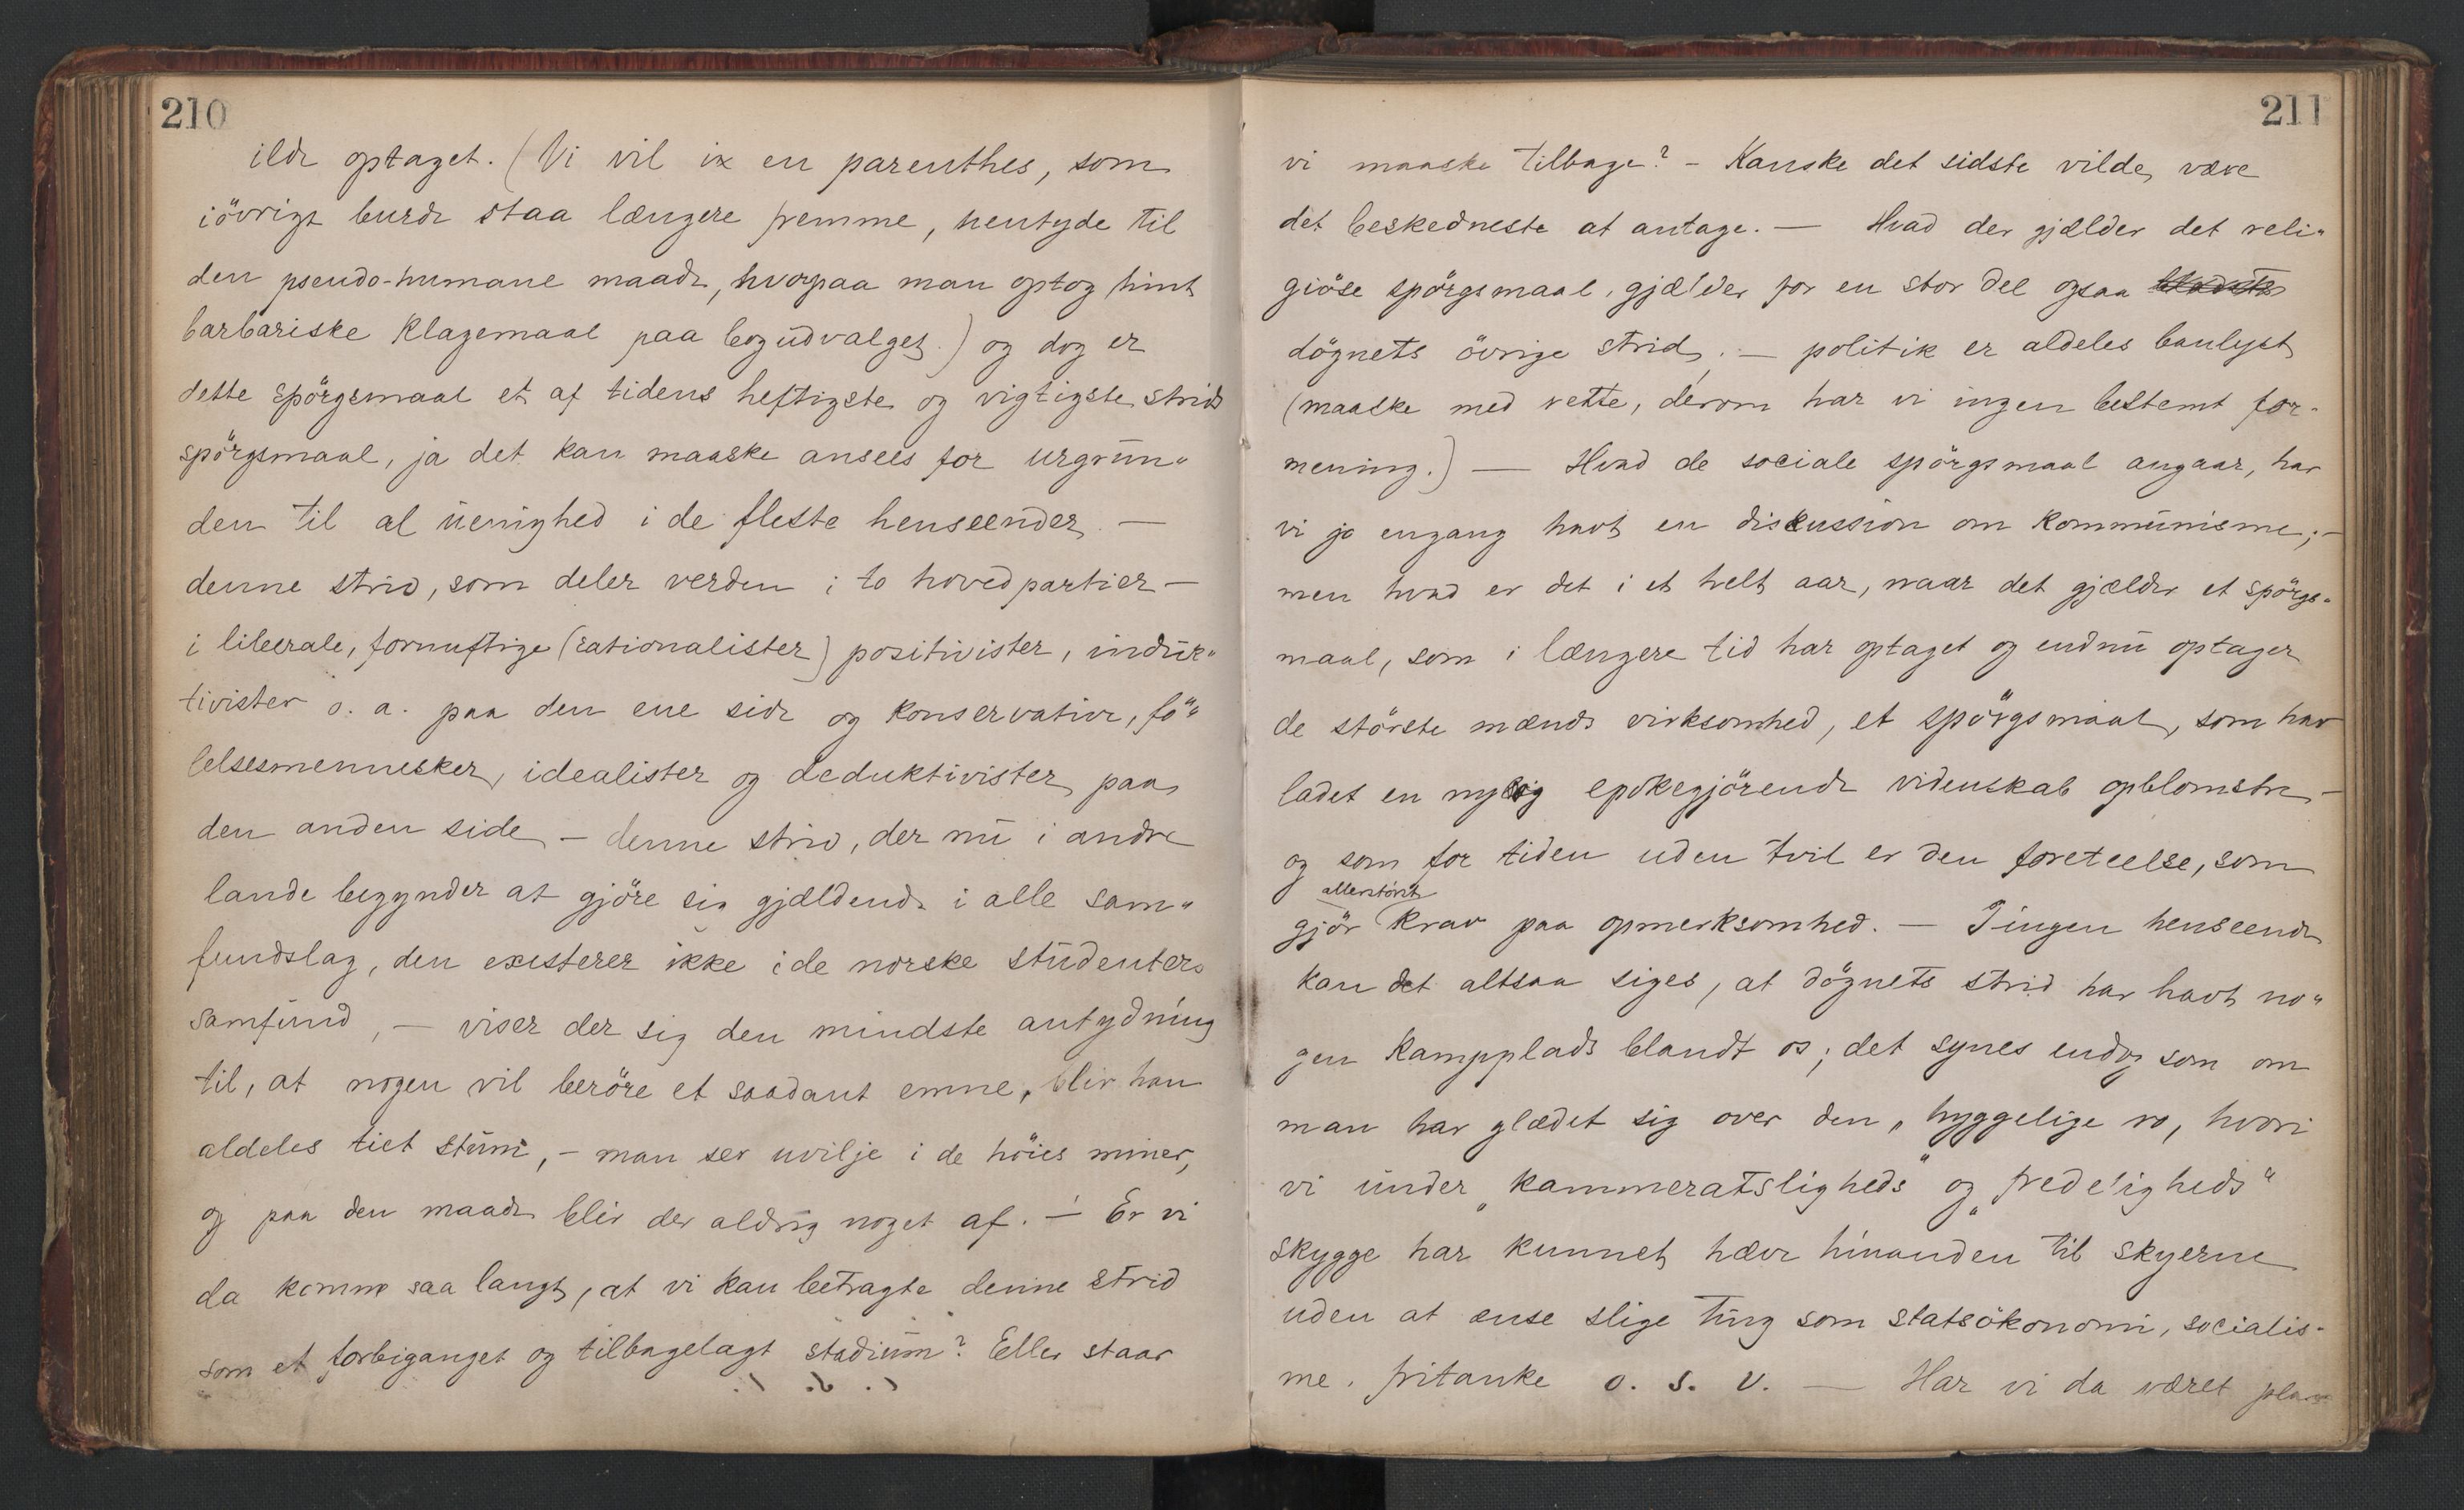 210
ilde optaget. (Vi vil ix en parenthes, som
iövrigt burde staa længere fremme, hentyde til
den pseudo-humane maade, hvorpaa man optog hint
barbariske klagemaal paa bogudvalget.) og dog er
dette spörgsmaal et af tidens heftigste og vigtigste strids
spörgsmaal, ja det kan maaske ansees for urgrun„
den til al uenighed i de fleste henseender. —
denne strid, som deler verden i to hovedpartier —
i liberale, fornuftige (rationalister) positivister, induk„
tivister o. a. paa den ene side og konservative, fö„
lelsesmennesker, idealister og deduktivister paa
den anden side – denne strid, der nu i andre
lande begynder at gjöre sig gjældende i alle sam„
fundslag, den existerer ikke i de norske studenters
samfund, — viser der sig den mindste antydning
til, at nogen vil beröre et saadant emne, blir han
aldeles tiet stum, – man ser uvilje i de höies miner,
og paa den maade blir der aldrig noget af. – Er vi
da komne saa langt, at vi kan betragte denne strid
som et forbiganget og tilbagelagt stadium? Eller staar
211
vi maaske tilbage? – Kanske det sidste vilde være
det beskedneste at antage. — Hvad der gjælder det reli„
giöse spörgsmaal, gjælder for en stor del ogsaa
dögnets övrige strid; — politik er aldeles banlyst
(maaske med rette, derom har vi ingen bestemt for-
mening.) — Hvad de sociale spörgsmaal angaar, har
vi jo engang havt en diskussion om kommunisme; –
men hvad er det i et helt aar, naar det gjælder et spörgs„
maal, som i længere tid har optaget og endnu optager
de störste mænds virksomhed, et spörgsmaal, som har
ladet en ny og epokegjörende videnskab opblomstre –
og som for tiden uden tvil er den foreteelse, som
allerstörst
gjör krav paa opmerksomhed. — I ingen henseende
kan det altsaa siges, at dögnets strid har havt no„
gen kampplads blandt os; det synes endog som om
man har glædet sig over den „hyggelige ro, hvori
vi under „kammeratsligheds" og „fredeligheds"
skygge har kunnet hæve hinanden til skyerne
uden at ense slige ting som statsökonomi, socialis-
me, fritanke o. s. v. — Har vi da været plan